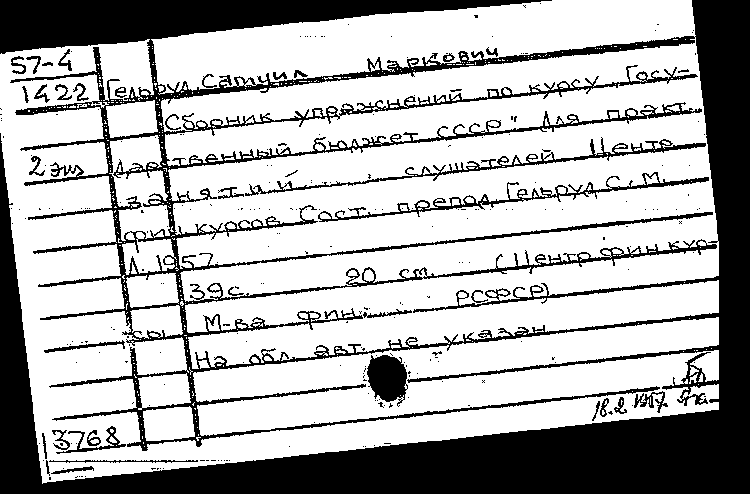 57-4
1422 Гельруд Самуил Маркович
Сборник упражнений по курсу „Госу-
2 экз дарственный бюджет СССР" Для практ.
занятий ..... слушателей Центр.
фин курсов Сост. препод Гельруд С. М.
Л., 1957.
39 с. 20 см. (Центр фин кур-
сы М-ва фин. .... РСФСР)
На обл. авт. не указан
18.2 1957.
3768